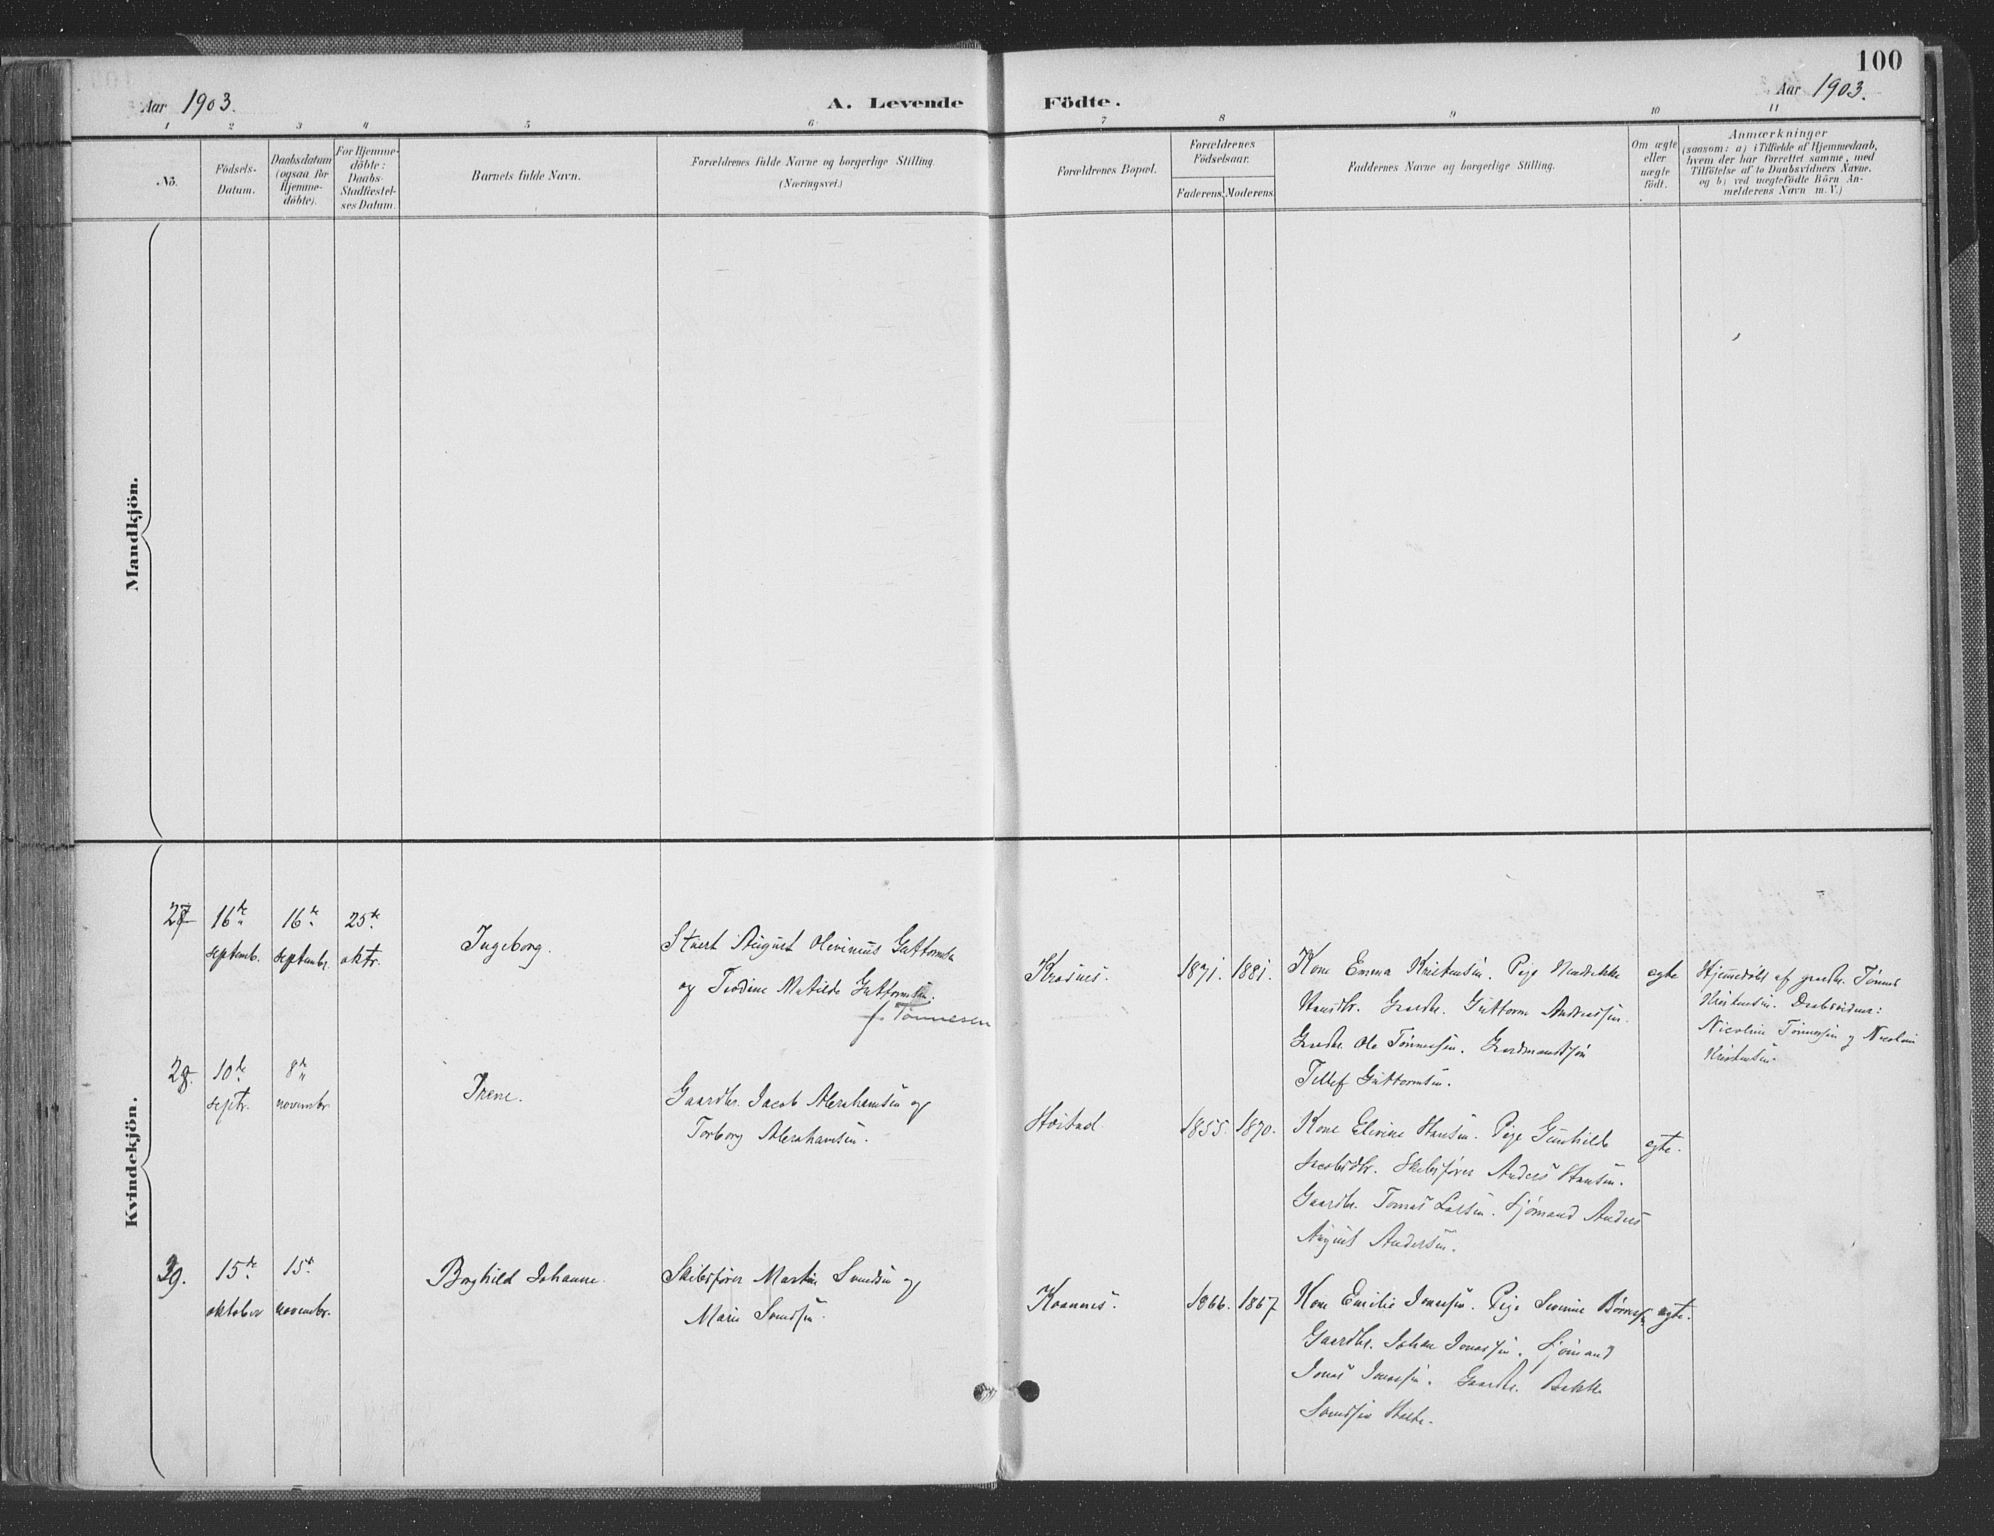 100
Aar 1903.
A. Levende Födte.
Aar 1903.
1 2 3 4 5 6 7 8 9 10 11
No.
Födsels-
Datum.
Daabsdatum
(ogsaa for
Hjemme-
döbte).
For Hjemme-
döbte:
Daabs-
Stadfæstel-
ses Datum.
Barnets fulde Navn.
Forældrenes fulde Navne og borgerlige Stilling
(Næringsvei.)
Forældrenes Bopæl.
Forældrenes
Födselsaar.
Faderens. Moderens.
Faddernes Navne og borgerlige Stilling.
Om ægte
eller
uægte
födt.
Anmærkninger
(saasom: a) i Tilfælde af Hjemmedaab,
hvem der har forrettet samme, med
Tilföielse af to Daabsvidners Navne,
og b) ved uægtefödte Börn An-
melderens Navn m. V.)
Mandkjön.
Kvindekjön.
27
16de
septemb.
16de
septembr.
25de
oktr.
Ingeborg.
August Olevinius
og Matilde Guttormsen.
f. Tönnesen
1871. 1881.
Kone Emma Kristensen. Pige
Gaardbr. Guttorm Andreassen.
Gaardbr. Ole Tönnessen.
Tellef Guttormsen.
egte
Hjemmedöbt af gaardbr. Tönnes
Kristensen. Daabsvidner:
Nicoline Tönnessen og
Kristensen.
28.
10de
septr.
8de
novembr.
Irene.
Gaardbr. Jacob Abrahamsen og
Torborg Abrahamsen.
1855. 1870.
Kone Elevine Hansen. Pige Gunhilde
Jacobsdtr. Skibsförer Anders Hansen.
Gaardbr. Tomas Larsen. Sjömand Anders
August Andersen.
egte.
29.
15de
oktober
15de
novembr.
Borghild Johanne.
Skibsförer Martin Svendsen og
Marie Svendsen.
1866. 1867
Kone Emilie Jonassen. Pige Severine
Gaardbr. Johan Jonassen. Sjömand
Jonas Jonassen. Gaardbr.
Svendsen
egte.